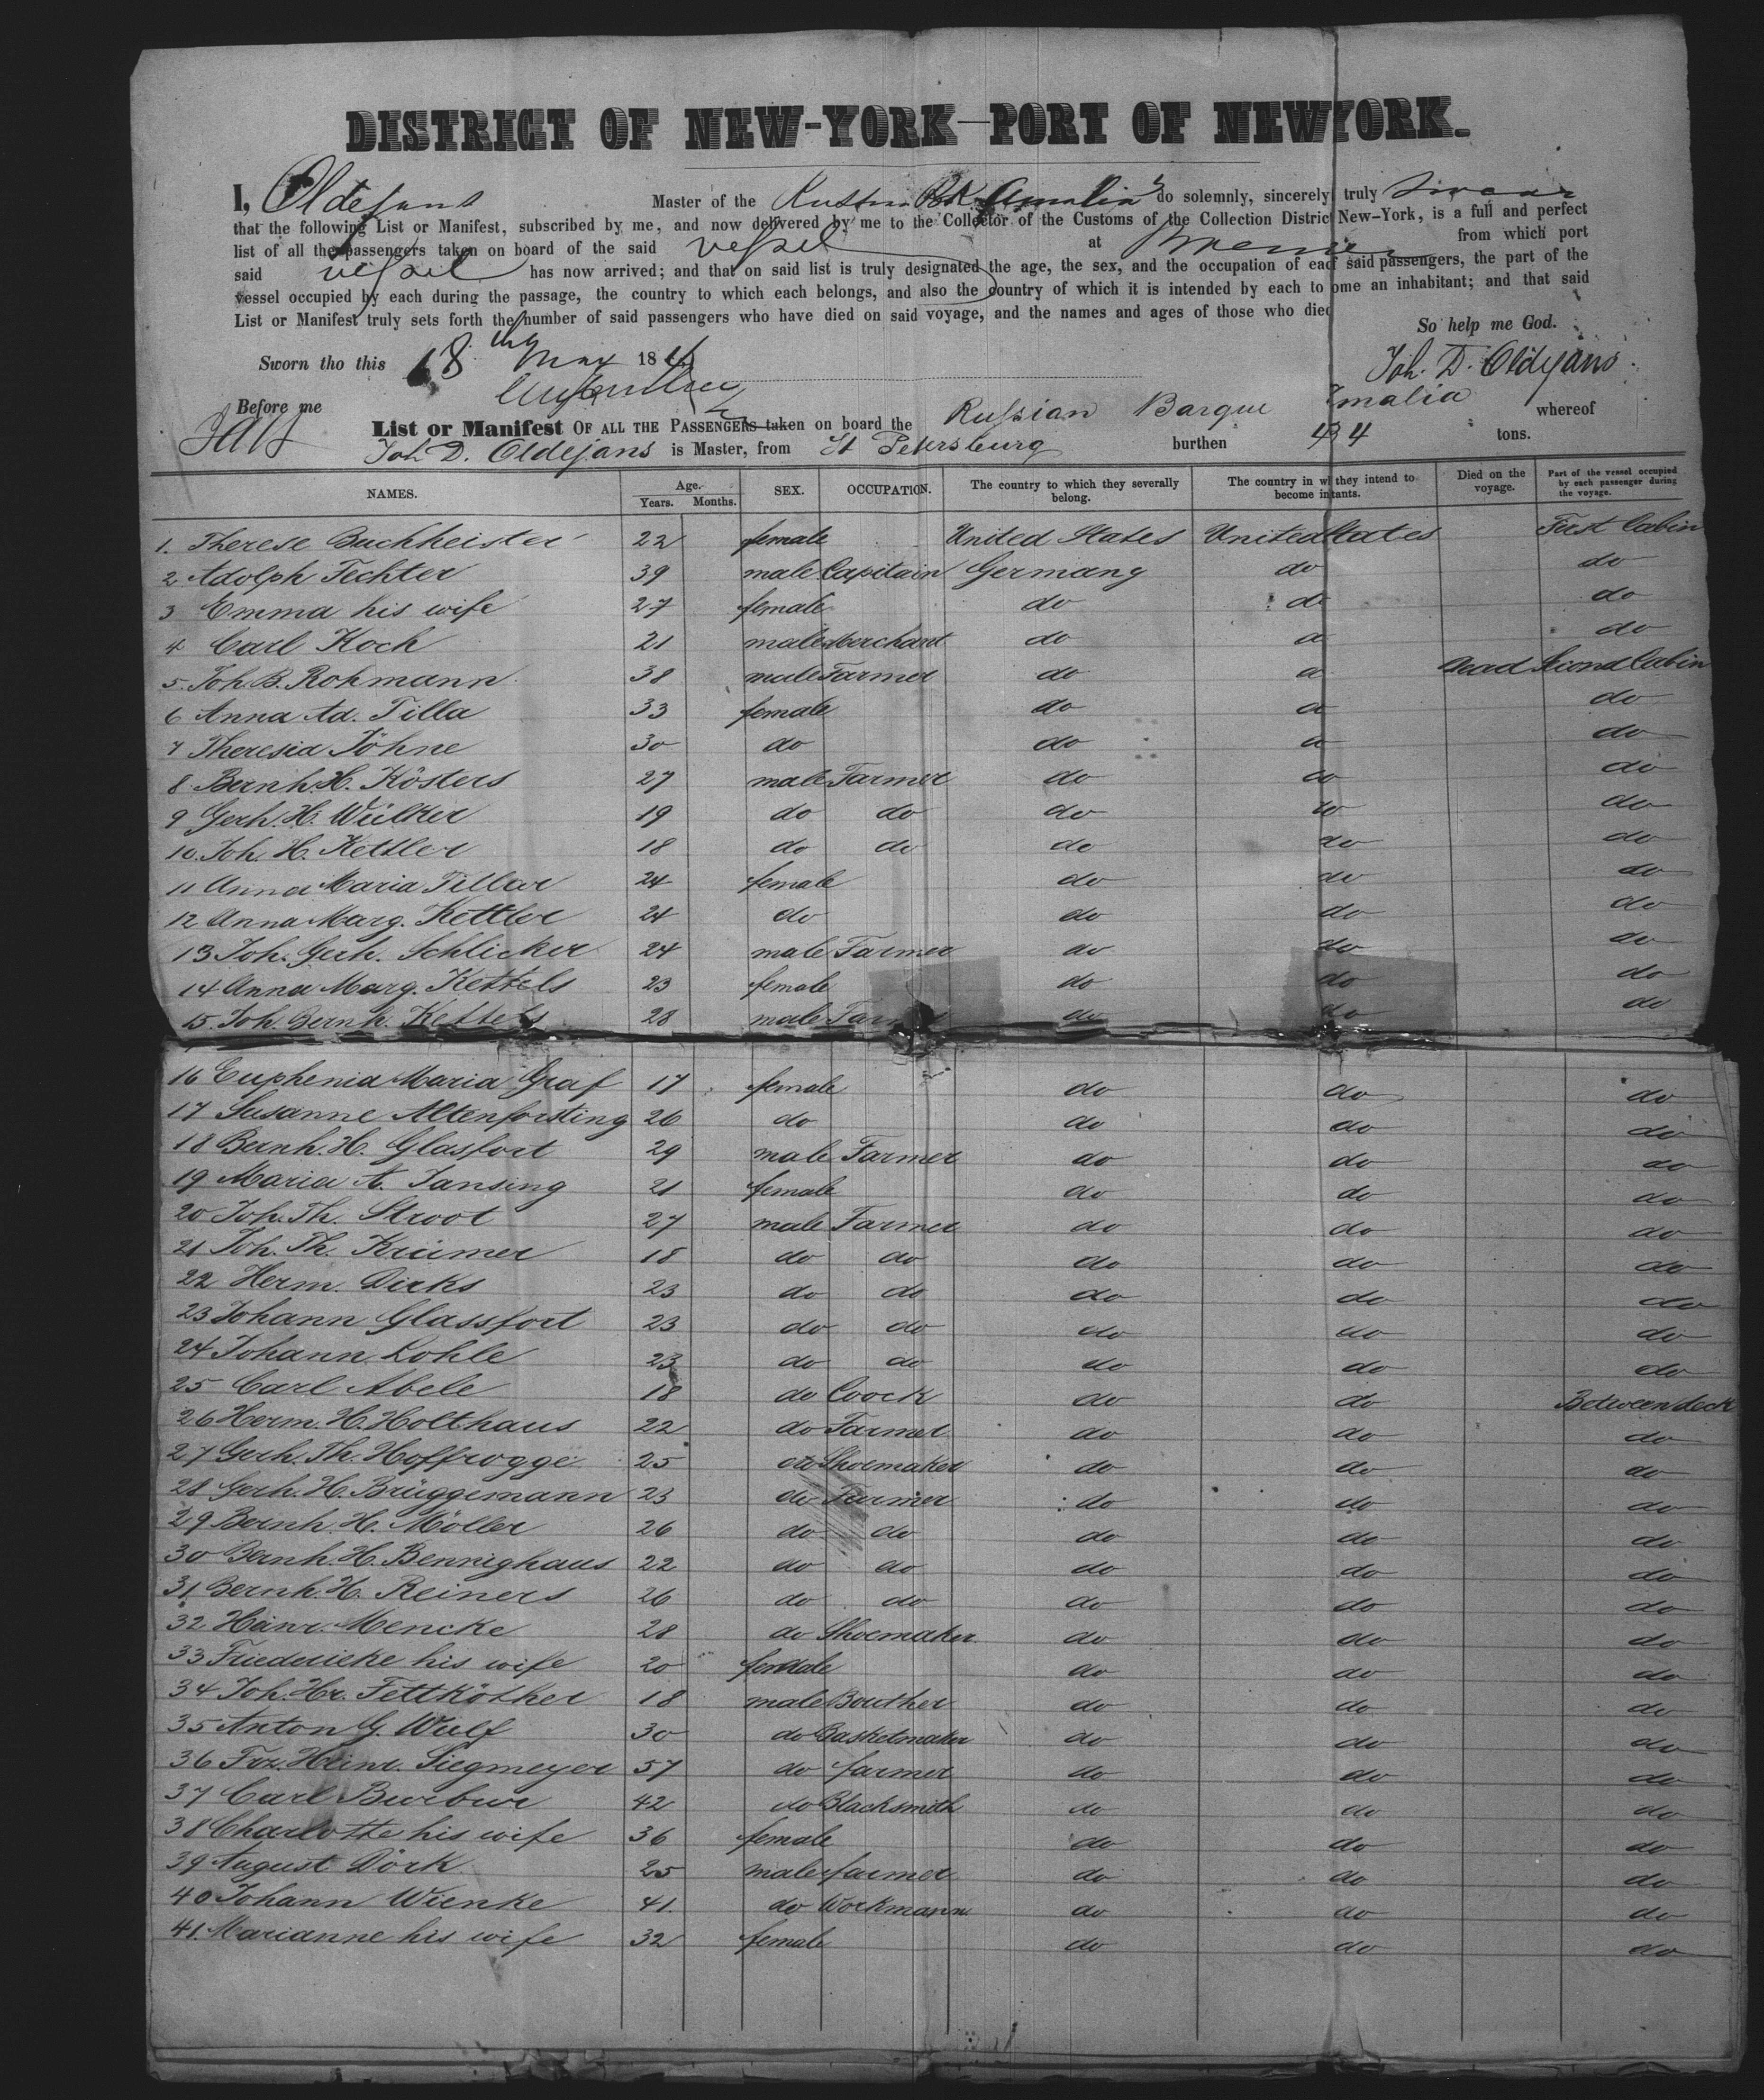 DISTRICT OF NEW-YORK—PORT OF NEW YORK.
I, Oldejans Master of the Russian Bk Amalia do solemnly, sincerely truly swear
that the following List or Manifest, subscribed by me, and now delivered by me to the Collector of the Customs of the Collection District New-York, is a full and perfect
list of all the passengers taken on board of the said vessel at from which port
said vessel has now arrived; and that on said list is truly designated the age, the sex, and the occupation of each said passengers, the part of the
vessel occupied by each during the passage, the country to which each belongs, and also the country of which it is intended by each to ome an inhabitant; and that said
List or Manifest truly sets forth the number of said passengers who have died on said voyage, and the names and ages of those who died
So help me God.
Sworn tho this 18th May 18
Joh. D. Oldejans
Before me
List or Manifest OF ALL THE PASSENGERS taken on board the Russian Barque Amalia whereof
Joh D. Oldejans is Master, from St Petersburg burthen 434 tons.
NAMES. Age. Years. Months. SEX. OCCUPATION. The country to which they severally belong. The country in w they intend to become in tants. Died on the voyage. Part of the vessel occupied by each passenger during the voyage.
1. Therese Buchheister 22 female United States United States First Cabin
2 Adolph Fechter 39 male Capitain Germany do do
3 Emma his wife 27 female do do do
4 Carl Koch 21 male Merchant do do do
5. Joh. B. Rohmann 38 male Farmer do do dead Second Cabin
6 Anna Ad. Tilla 33 female do do do
7 Theresia Föhne 30 do do do do
8 Bernh. H. Kösters 27 male Farmer do do do
9 Gerh. H. Wülker 19 do do do do do
10. Joh. H. Kettler 18 do do do do do
11 Anna Maria Tillar 24 female do do do
12 Anna Marg. Kettler 24 do do do do
13 Joh. Gerh. Schlicker 24 male Farmer do do do
14 Anna Marg. Kettels 23 female do do do
15. Joh. Bernh. Kettels 28 male Farmer do do do
16 Euphenia Maria Graf 17 female do do do
17 Susanne Altenforsting 26 do do do do
18 Bernh. H. Glasfort 29 male Farmer do do do
19 Maria A. Jansing 21 female do do do
20 Joh. Th. Stroot 27 male Farmer do do do
21 Joh. Th. Krümer 18 do do do do do
22 Herm. Dirks 23 do do do do do
23 Johann Glassfort 23 do do do do do
24 Johann Lohle 23 do do do do do
25 Carl Abele 18 do Coock do do Between deck
26 Herm. H. Holthaus 22 do Farmer do do do
27 Gerh. Th. Hoffrogge 25 do Shoemaker do do do
28 Gerh. H. Brüggemann 23 do Farmer do do do
29 Bernh. H. Möller 26 do do do do do
30 Bernh. H. Benninghaus 22 do do do do do
31 Bernh. H. Reiners 26 do do do do do
32 Heinr. Mencke 28 do Shoemaker do do do
33 Friedericke his wife 20 female do do do
34 Joh. Hr. Fettköther 18 male Bouther do do do
35 Anton G. Wulf 30 do Basketmaker do do do
36 Frz. Heinr. Siegmeyer 57 do farmer do do do
37 Carl Burbur 42 do Blacksmith do do do
38 Charlotte his wife 36 female do do do
39 August Dörk 25 male farmer do do do
40 Johann Wienke 41. do Workmann do do do
41. Marianne his wife 32 female do do do